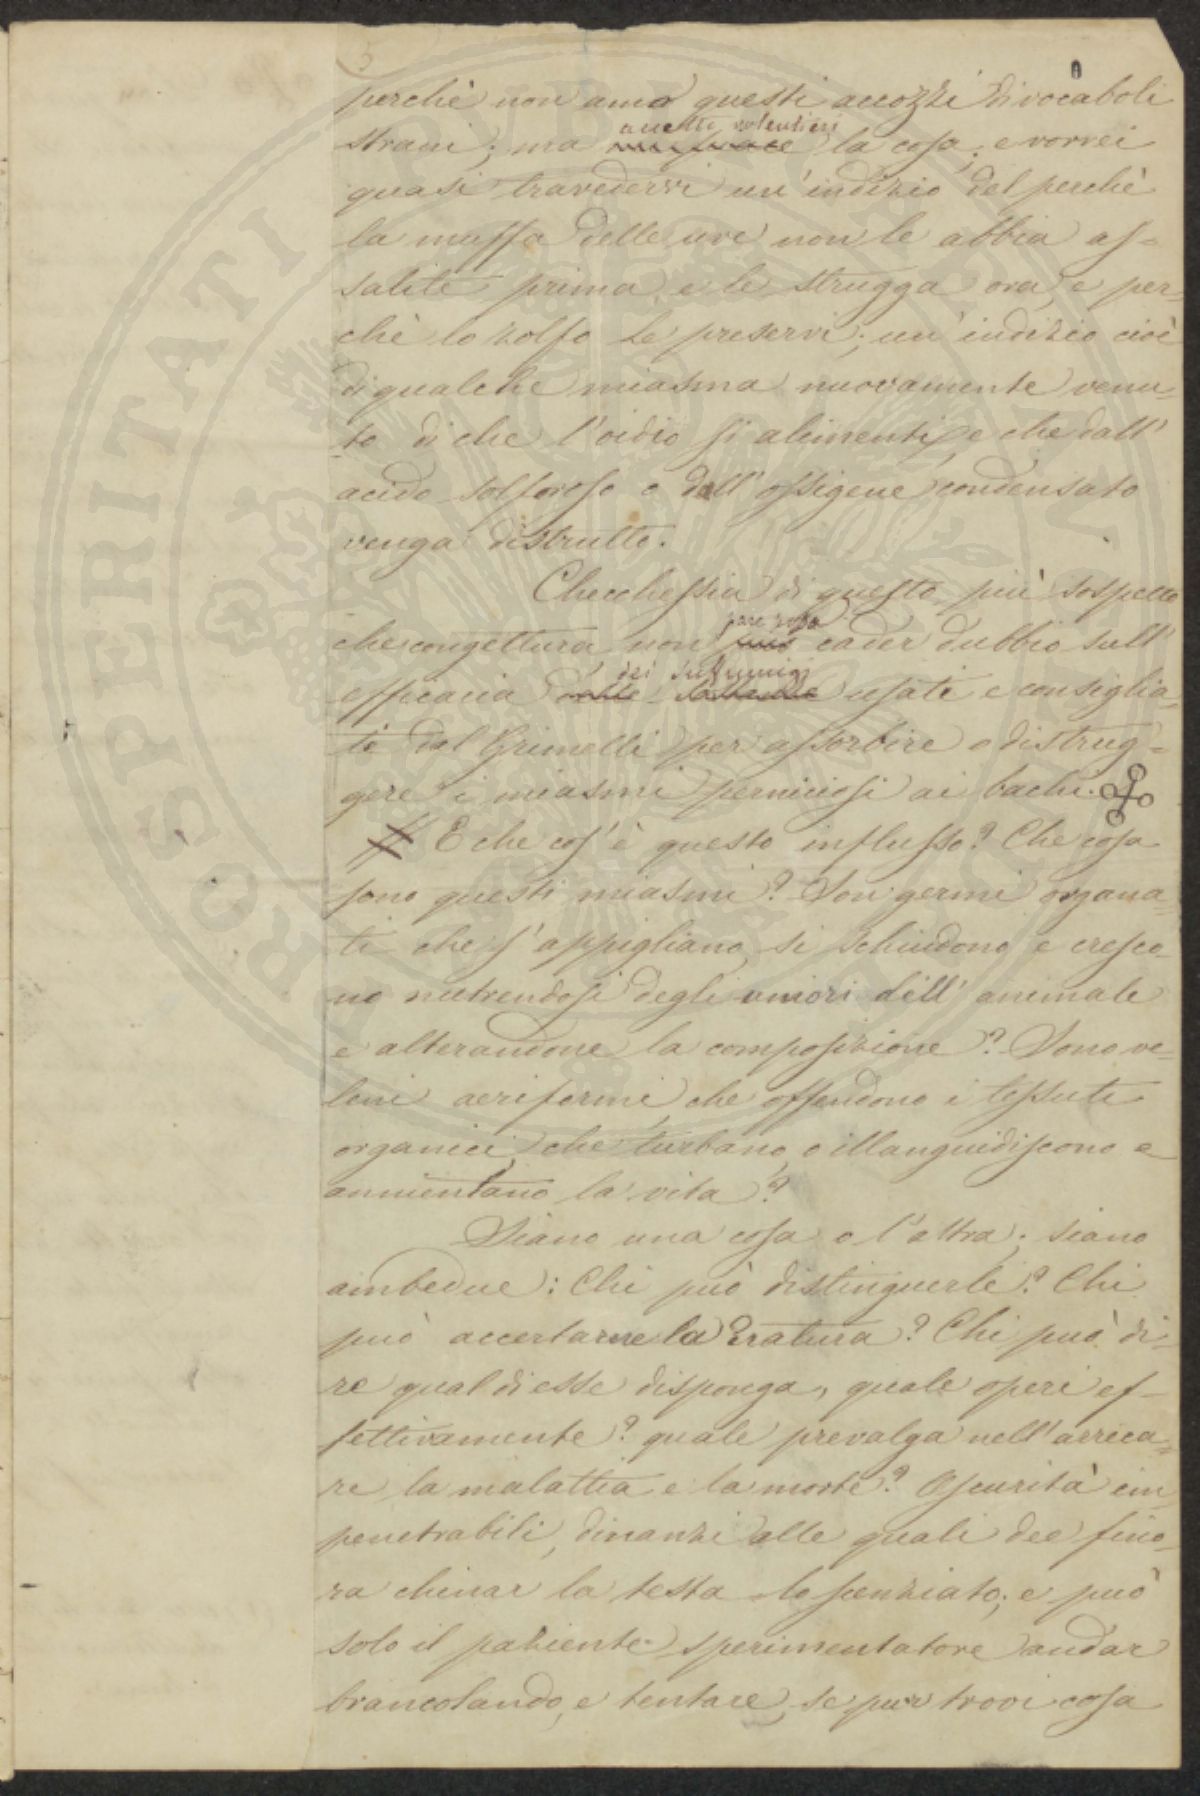 perchè non amo questi accozzi di vocaboli
accetto volentieri
strani; ma mi piace la cosa; e vorrei
quasi travedervi un'indizio del perchè
la muffa delle uve non le abbia as=
salite prima e le strugga ora, e per=
chè lo zolfo le preservi; un'indizio cioè
di qualche miasma nuovamente venu=
to di che l'oidio si alimenti, e che dall'
acido solforoso o dall'ossigene condensato
venga distrutto.
Checchessia di questo più sospetto
che congettura, non può cader dubbio sull'
dei suffumigi
efficacia delle usati e consiglia=
ti dal Grimelli per assorbire o distrug=
gere i miasmi perniciosi ai bachi.
E che cos'è questo influsso? Che cosa
sono questi miasmi? Son germi organa=
ti che s'appigliano, si schiudono e cresco=
no nutrendosi degli umori dell'animale
e alterandone la composizione? Sono ve=
leni aeriformi, che offendono i tessuti
organici, che turbano, o illanguidiscono e
annientano la vita?
Siano una cosa o l'altra; siano
ambedue: Chi può distinguerle? Chi
può accertarne la natura? Chi può di=
re qual di esse disponga, quale operi ef=
fettivamente? quale prevalga nell'arreca=
re la malattia e la morte? Oscurità im=
penetrabili, dinanzi alle quali dee fino=
ra chinar la testa lo scenziato; e può
solo il paziente sperimentatore andar
brancolando, e tentare, se pur trovi cosa
PROSPERITATI PUBLICAE